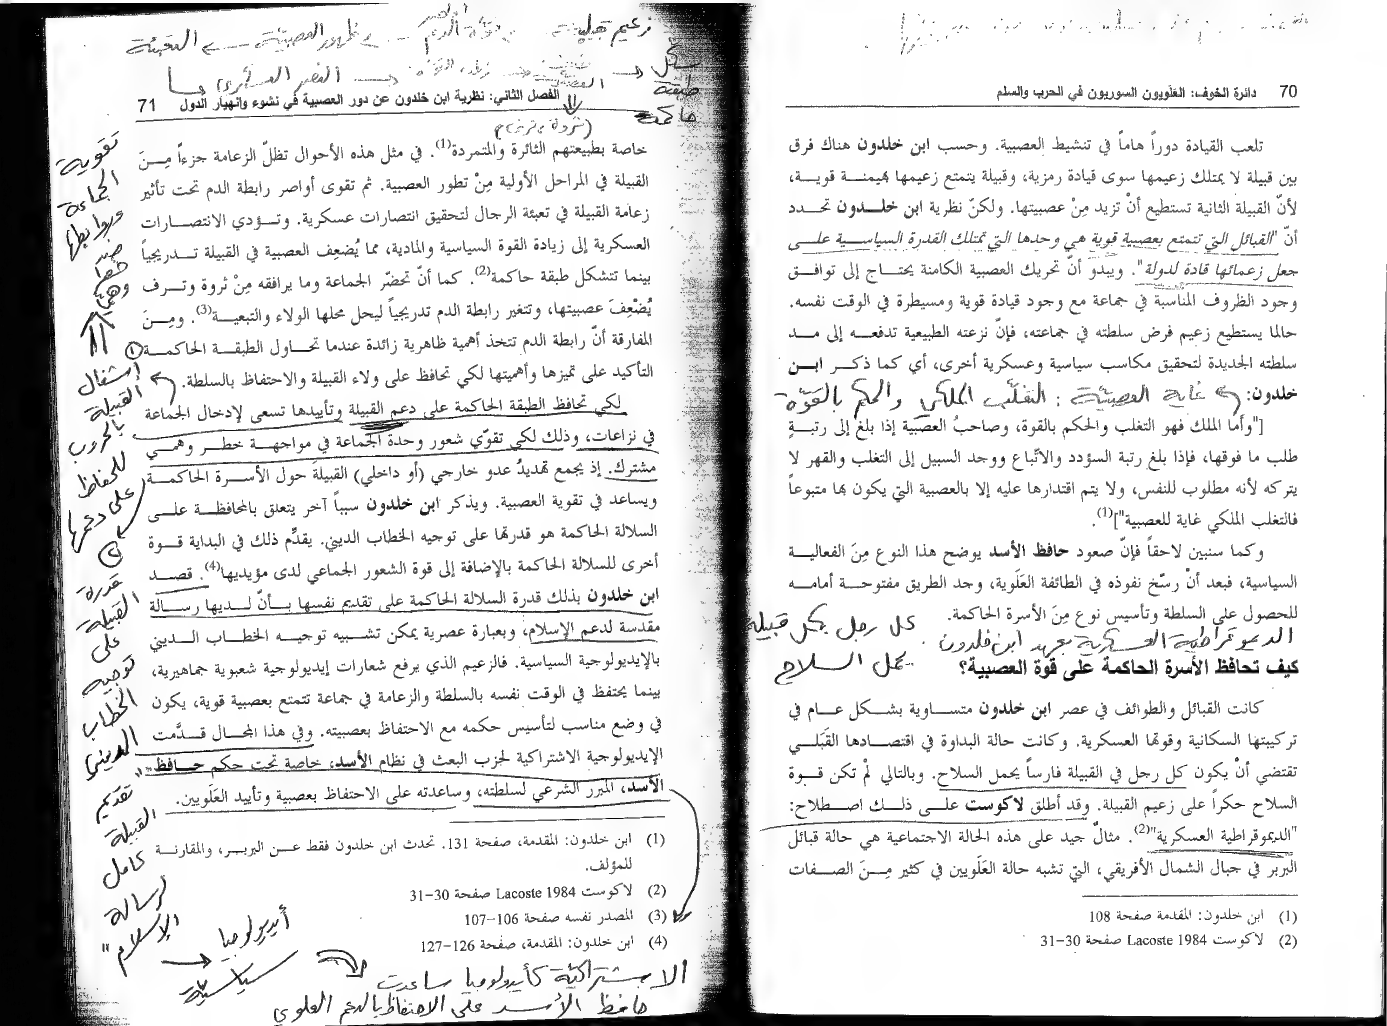 70 دائرة الخوف: العَلَويون السوريون في الحرب والسلم
تلعب القيادة دوراً هاماً في تنشيط العصبية. وحسب ابن خلدون هناك فرق
بين قبيلة لا يمتلك زعيمها سوى قيادة رمزية، وقبيلة يتمتع زعيمها بهيمنة قوية،
لأنّ القبيلة الثانية تستطيع أنْ تزيد مِنْ عصبيتها. ولكنّ نظرية ابن خلدون تحدد
أنّ "القبائل التي تتمتع بعصبية قوية هي وحدها التي تمتلك القدرة السياسية على
جعل زعمائها قادة لدولة". ويبدو أنّ تحريك العصبية الكامنة يحتاج إلى توافق
وجود الظروف المناسبة في جماعة مع وجود قيادة قوية ومسيطرة في الوقت نفسه.
حالما يستطيع زعيم فرض سلطته في جماعته، فإنّ نزعته الطبيعية تدفعه إلى مد
سلطته الجديدة لتحقيق مكاسب سياسية وعسكرية أخرى، أي كما ذكر ابن
خلدون: غاية العصبية: التغلب الملكي والحكم بالقوة
["وأما الملك فهو التغلب والحكم بالقوة، وصاحبُ العصَبية إذا بلغ إلى رتبةٍ
طلب ما فوقها، فإذا بلغ رتبة السؤدد والاتّباع ووجد السبيل إلى التغلب والقهر لا
يتركه لأنه مطلوب للنفس، ولا يتم اقتدارها عليه إلا بالعصبية التي يكون بها متبوعاً
فالتغلب الملكي غاية للعصبية"](1).
وكما سنبين لاحقاً فإنّ صعود حافظ الأسد يوضح هذا النوع مِنَ الفعالية
السياسية، فبعد أنْ رسّخ نفوذه في الطائفة العَلَوية، وجد الطريق مفتوحة أمامه
للحصول على السلطة وتأسيس نوع مِنَ الأسرة الحاكمة.
كل رجل بكل قبيلة
الديموقراطية العسكرية بعهد ابن خلدون.
يحمل السلاح
كيف تحافظ الأسرة الحاكمة على قوة العصبية؟
كانت القبائل والطوائف في عصر ابن خلدون متساوية بشكل عام في
تركيبتها السكانية وقوتها العسكرية. وكانت حالة البداوة في اقتصادها القَبَلي
تقتضي أنْ يكون كل رجل في القبيلة فارساً يحمل السلاح. وبالتالي لمْ تكن قوة
السلاح حكراً على زعيم القبيلة. وقد أطلق لاكوست على ذلك اصطلاح:
"الديموقراطية العسكرية"(2). مثالٌ جيد على هذه الحالة الاجتماعية هي حالة قبائل
البربر في جبال الشمال الأفريقي، التي تشبه حالة العَلَويين في كثير مِنَ الصفات
(1) ابن خلدون: المقدمة صفحة 108
(2) لاكوست Lacoste 1984 صفحة 30-31
زعيم قبيلة قوة الدم ظهور العصبية التعبئة
شكل طبقة حاكمة
النصر العسكري
الفصل الثاني: نظرية ابن خلدون عن دور العصبية في نشوء وانهيار الدول 71
خاصة بطبيعتهم الثائرة والمتمردة(1). في مثل هذه الأحوال تظلّ الزعامة جزءاً مِنَ
القبيلة في المراحل الأولية مِنْ تطور العصبية. ثم تقوى أواصر رابطة الدم تحت تأثير
زعامة القبيلة في تعبئة الرجال لتحقيق انتصارات عسكرية. وتؤدي الانتصارات
العسكرية إلى زيادة القوة السياسية والمادية، مما يُضعِف العصبية في القبيلة تدريجياً
بينما تتشكل طبقة حاكمة(2). كما أنّ تحضّر الجماعة وما يرافقه مِنْ ثروة وترف
يُضْعِفَ عصبيتها، وتتغير رابطة الدم تدريجياً ليحل محلها الولاء والتبعية(3). ومِنَ
المفارقة أنّ رابطة الدم تتخذ أهمية ظاهرية زائدة عندما تحاول الطبقة الحاكمة
التأكيد على تميزها وأهميتها لكي تحافظ على ولاء القبيلة والاحتفاظ بالسلطة.
لكي تحافظ الطبقة الحاكمة على دعم القبيلة وتأييدها تسعى لإدخال الجماعة
في نزاعات، وذلك لكي تقوّي شعور وحدة الجماعة في مواجهة خطر وهمي
مشترك. إذ يجمع تهديدُ عدو خارجي (أو داخلي) القبيلة حول الأسرة الحاكمة
ويساعد في تقوية العصبية. ويذكر ابن خلدون سبباً آخر يتعلق بالمحافظة على
السلالة الحاكمة هو قدرتها على توجيه الخطاب الديني. يقدِّم ذلك في البداية قوة
أخرى للسلالة الحاكمة بالإضافة إلى قوة الشعور الجماعي لدى مؤيديها(4). قصد
ابن خلدون بذلك قدرة السلالة الحاكمة على تقديم نفسها بأنّ لديها رسالة
مقدسة لدعم الإسلام، وبعبارة عصرية يمكن تشبيه توجيه الخطاب الديني
بالإيديولوجية السياسية. فالزعيم الذي يرفع شعارات إيديولوجية شعبوية جماهيرية،
بينما يحتفظ في الوقت نفسه بالسلطة والزعامة في جماعة تتمتع بعصبية قوية، يكون
في وضع مناسب لتأسيس حكمه مع الاحتفاظ بعصبيته. وفي هذا المجال قدَّمت
الإيديولوجية الاشتراكية لحزب البعث في نظام الأسد، خاصة تحت حكم حافظ
الأسد، المبرر الشرعي لسلطته، وساعدته على الاحتفاظ بعصبية وتأييد العَلَويين.
(1) ابن خلدون: المقدمة، صفحة 131. تحدث ابن خلدون فقط عن البربر، والمقارنة
للمؤلف.
(2) لاكوست Lacoste 1984 صفحة 30-31
(3) المصدر نفسه صفحة 106-107
(4) ابن خلدون: المقدمة، صفحة 126-127
تقوية
الجماعة
وروابطها
ضد
خطر
وهمي
① اشغال
القبيلة
بالحروب
للحفاظ
على دعمها
② قدرة
القبيلة
على
توجيه
الخطاب
الديني
"تقديم
القبيلة
كامل
رسالة
الإسلام"
أيديولوجيا
سياسية
الاشتراكية كأيدولوجيا ساعدت
حافظ الأسد على الاحتفاظ بالدعم العلوي